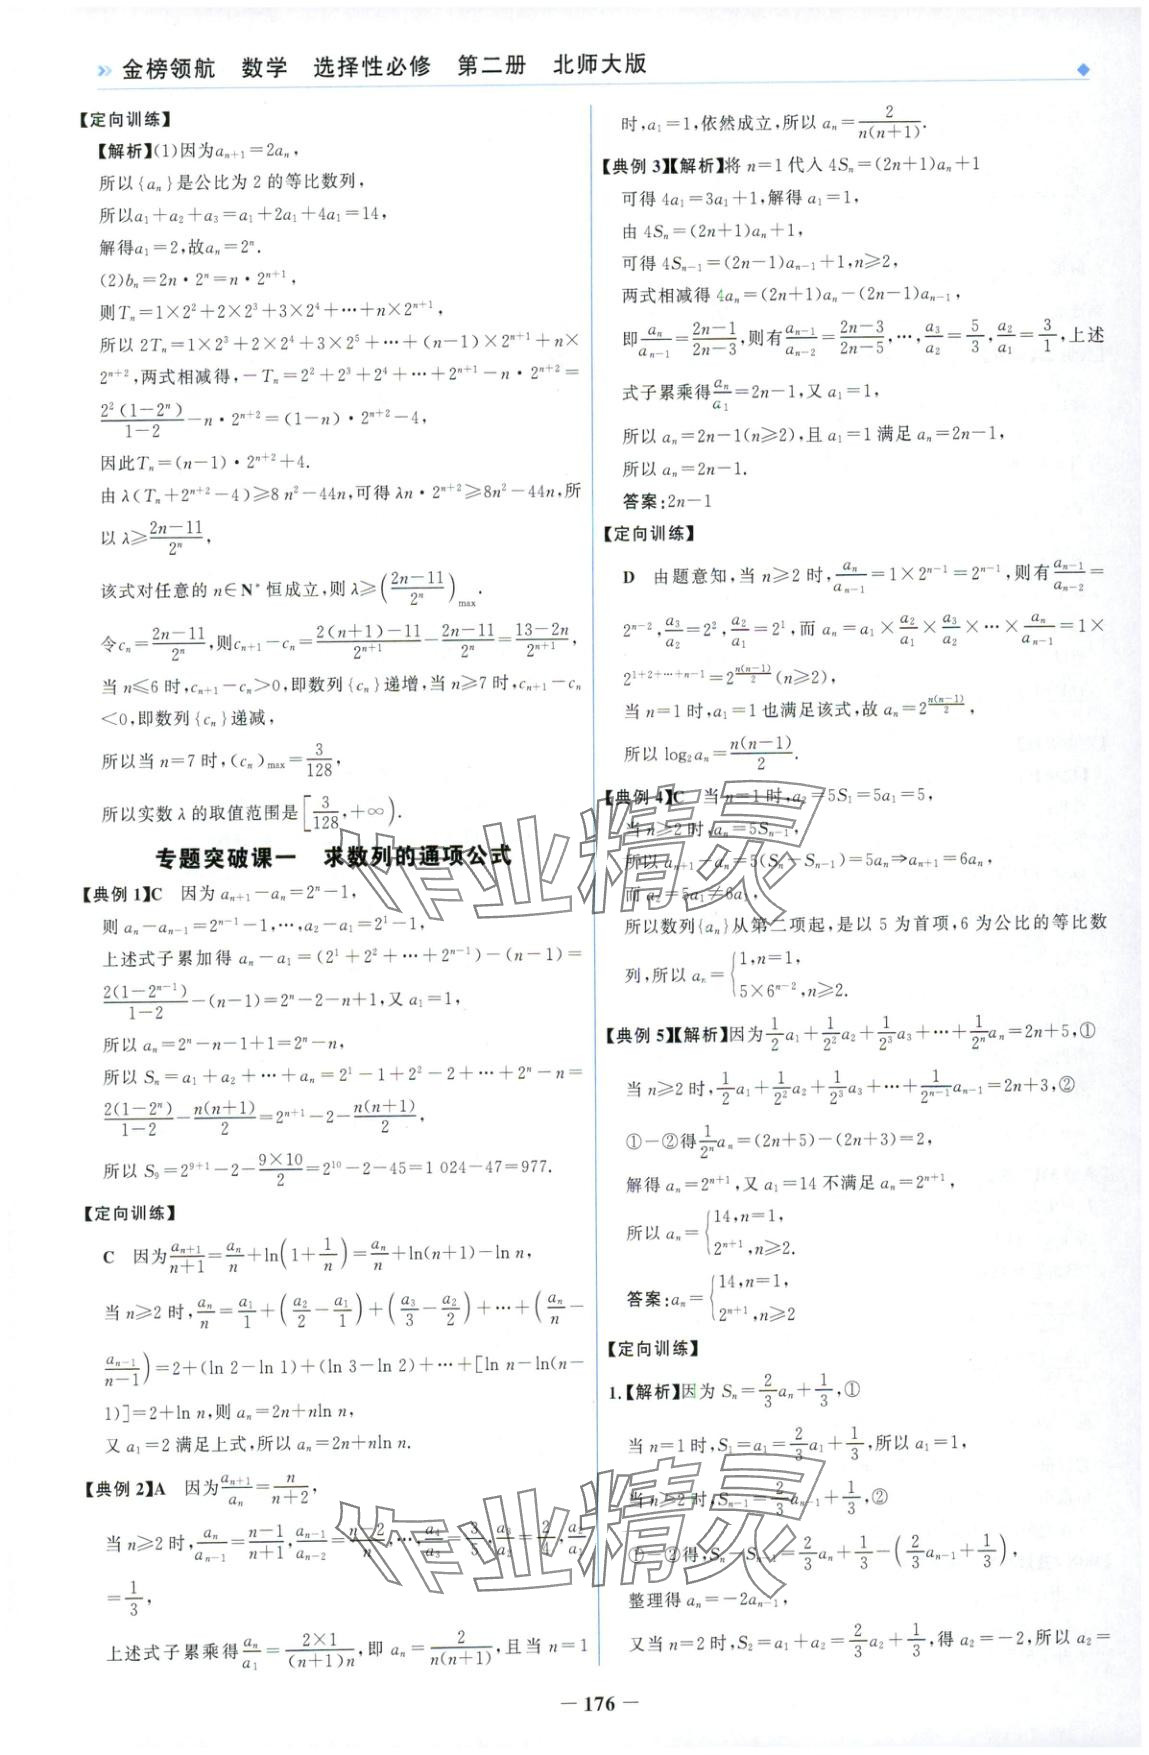 » 金榜领航 数学 选择性必修 第二册 北师大版
【定向训练】
【解析】(1)因为aₙ₊₁=2aₙ,
所以{aₙ}是公比为2的等比数列,
所以a₁+a₂+a₃=a₁+2a₁+4a₁=14,
解得a₁=2,故aₙ=2ⁿ.
(2)bₙ=2n·2ⁿ=n·2ⁿ⁺¹,
则Tₙ=1×2²+2×2³+3×2⁴+…+n×2ⁿ⁺¹,
所以2Tₙ=1×2³+2×2⁴+3×2⁵+…+(n-1)×2ⁿ⁺¹+n×
2ⁿ⁺²,两式相减得,-Tₙ=2²+2³+2⁴+…+2ⁿ⁺¹-n·2ⁿ⁺²=
2²(1-2ⁿ)/(1-2)-n·2ⁿ⁺²=(1-n)·2ⁿ⁺²-4,
因此Tₙ=(n-1)·2ⁿ⁺²+4.
由λ(Tₙ+2ⁿ⁺²-4)≥8n²-44n,可得λn·2ⁿ⁺²≥8n²-44n,所
以λ≥(2n-11)/2ⁿ,
该式对任意的n∈N*恒成立,则λ≥((2n-11)/2ⁿ)max.
令cₙ=(2n-11)/2ⁿ,则cₙ₊₁-cₙ=(2(n+1)-11)/2ⁿ⁺¹-(2n-11)/2ⁿ=(13-2n)/2ⁿ⁺¹,
当n≤6时,cₙ₊₁-cₙ>0,即数列{cₙ}递增,当n≥7时,cₙ₊₁-cₙ
<0,即数列{cₙ}递减,
所以当n=7时,(cₙ)max=3/128,
所以实数λ的取值范围是[3/128,+∞).
专题突破课一 求数列的通项公式
【典例1】C 因为aₙ₊₁-aₙ=2ⁿ-1,
则aₙ-aₙ₋₁=2ⁿ⁻¹-1,…,a₂-a₁=2¹-1,
上述式子累加得aₙ-a₁=(2¹+2²+…+2ⁿ⁻¹)-(n-1)=
2(1-2ⁿ⁻¹)/(1-2)-(n-1)=2ⁿ-2-n+1,又a₁=1,
所以aₙ=2ⁿ-n-1+1=2ⁿ-n,
所以Sₙ=a₁+a₂+…+aₙ=2¹-1+2²-2+…+2ⁿ-n=
2(1-2ⁿ)/(1-2)-n(n+1)/2=2ⁿ⁺¹-2-n(n+1)/2,
所以S₉=2⁹⁺¹-2-(9×10)/2=2¹⁰-2-45=1 024-47=977.
【定向训练】
C 因为aₙ₊₁/(n+1)=aₙ/n+ln(1+1/n)=aₙ/n+ln(n+1)-ln n,
当n≥2时,aₙ/n=a₁/1+(a₂/2-a₁/1)+(a₃/3-a₂/2)+…+(aₙ/n-
aₙ₋₁/(n-1))=2+(ln 2-ln 1)+(ln 3-ln 2)+…+[ln n-ln(n-
1)]=2+ln n,则aₙ=2n+nln n,
又a₁=2满足上式,所以aₙ=2n+nln n.
【典例2】A 因为aₙ₊₁/aₙ=n/(n+2),
当n≥2时,aₙ/aₙ₋₁=(n-1)/(n+1),aₙ₋₁/aₙ₋₂=(n-2)/n,…,a₄/a₃=3/5,a₃/a₂=2/4,a₂/a₁
=1/3,
上述式子累乘得aₙ/a₁=(2×1)/((n+1)n),即aₙ=2/(n(n+1)),且当n=1
时,a₁=1,依然成立,所以aₙ=2/(n(n+1)).
【典例3】【解析】将n=1代入4Sₙ=(2n+1)aₙ+1
可得4a₁=3a₁+1,解得a₁=1,
由4Sₙ=(2n+1)aₙ+1,
可得4Sₙ₋₁=(2n-1)aₙ₋₁+1,n≥2,
两式相减得4aₙ=(2n+1)aₙ-(2n-1)aₙ₋₁,
即aₙ/aₙ₋₁=(2n-1)/(2n-3),则有aₙ₋₁/aₙ₋₂=(2n-3)/(2n-5),…,a₃/a₂=5/3,a₂/a₁=3/1,上述
式子累乘得aₙ/a₁=2n-1,又a₁=1,
所以aₙ=2n-1(n≥2),且a₁=1满足aₙ=2n-1,
所以aₙ=2n-1.
答案:2n-1
【定向训练】
D 由题意知,当n≥2时,aₙ/aₙ₋₁=1×2ⁿ⁻¹=2ⁿ⁻¹,则有aₙ₋₁/aₙ₋₂=
2ⁿ⁻²,a₃/a₂=2²,a₂/a₁=2¹,而aₙ=a₁×a₂/a₁×a₃/a₂×…×aₙ/aₙ₋₁=1×
2^(1+2+…+n-1)=2^(n(n-1)/2)(n≥2),
当n=1时,a₁=1也满足该式,故aₙ=2^(n(n-1)/2),
所以log₂aₙ=n(n-1)/2.
【典例4】C 当n=1时,a₂=5S₁=5a₁=5,
当n≥2时,aₙ=5Sₙ₋₁,
所以aₙ₊₁-aₙ=5(Sₙ-Sₙ₋₁)=5aₙ⇒aₙ₊₁=6aₙ,
而a₂=5a₁≠6a₁,
所以数列{aₙ}从第二项起,是以5为首项,6为公比的等比数
列,所以aₙ={1,n=1,
5×6ⁿ⁻²,n≥2.
【典例5】【解析】因为1/2a₁+1/2²a₂+1/2³a₃+…+1/2ⁿaₙ=2n+5,①
当n≥2时,1/2a₁+1/2²a₂+1/2³a₃+…+1/2ⁿ⁻¹aₙ₋₁=2n+3,②
①-②得1/2ⁿaₙ=(2n+5)-(2n+3)=2,
解得aₙ=2ⁿ⁺¹,又a₁=14不满足aₙ=2ⁿ⁺¹,
所以aₙ={14,n=1,
2ⁿ⁺¹,n≥2.
答案:aₙ={14,n=1,
2ⁿ⁺¹,n≥2
【定向训练】
1.【解析】因为Sₙ=2/3aₙ+1/3,①
当n=1时,S₁=a₁=2/3a₁+1/3,所以a₁=1,
当n≥2时,Sₙ₋₁=2/3aₙ₋₁+1/3,②
①-②得,Sₙ-Sₙ₋₁=2/3aₙ+1/3-(2/3aₙ₋₁+1/3),
整理得aₙ=-2aₙ₋₁,
又当n=2时,S₂=a₁+a₂=2/3a₂+1/3,得a₂=-2,所以a₂=
— 176 —
作业精灵
作业精灵